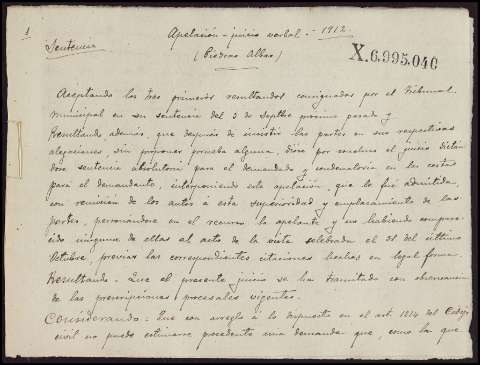 1
Apelación - juicio verbal - 1912.
Sentencia
(Piedras Albas)
X.6.995.040
Aceptando los tres primeros resultandos consignados por el Tribunal
municipal en su sentencia del 3 de Septbre próximo pasado y
Resultando además, que después de insistir las partes en sus respectivas
alegaciones, sin proponer prueba alguna, dióse por concluso el juicio dictán
dose sentencia absolutoria para el demandado y condenatoria en las costas
para el demandante, interponiendo esta apelación, que le fué admitida,
con remisión de los autos á esta superioridad y emplazamiento de las
partes, personandose en el recurso la apelante y no habiendo compare
cido ninguna de ellas al acto de la vista celebrada el 31 del último
Octubre, previas las correspondientes citaciones hechas en legal forma.
Resultando. Que el presente juicio se ha tramitado con observancia
de las prescripciones procesales vigentes.
Considerando: Que con arreglo á lo dispuesto en el art. 1214 del Código
civil no puede estimarse procedente una demanda que, como la que